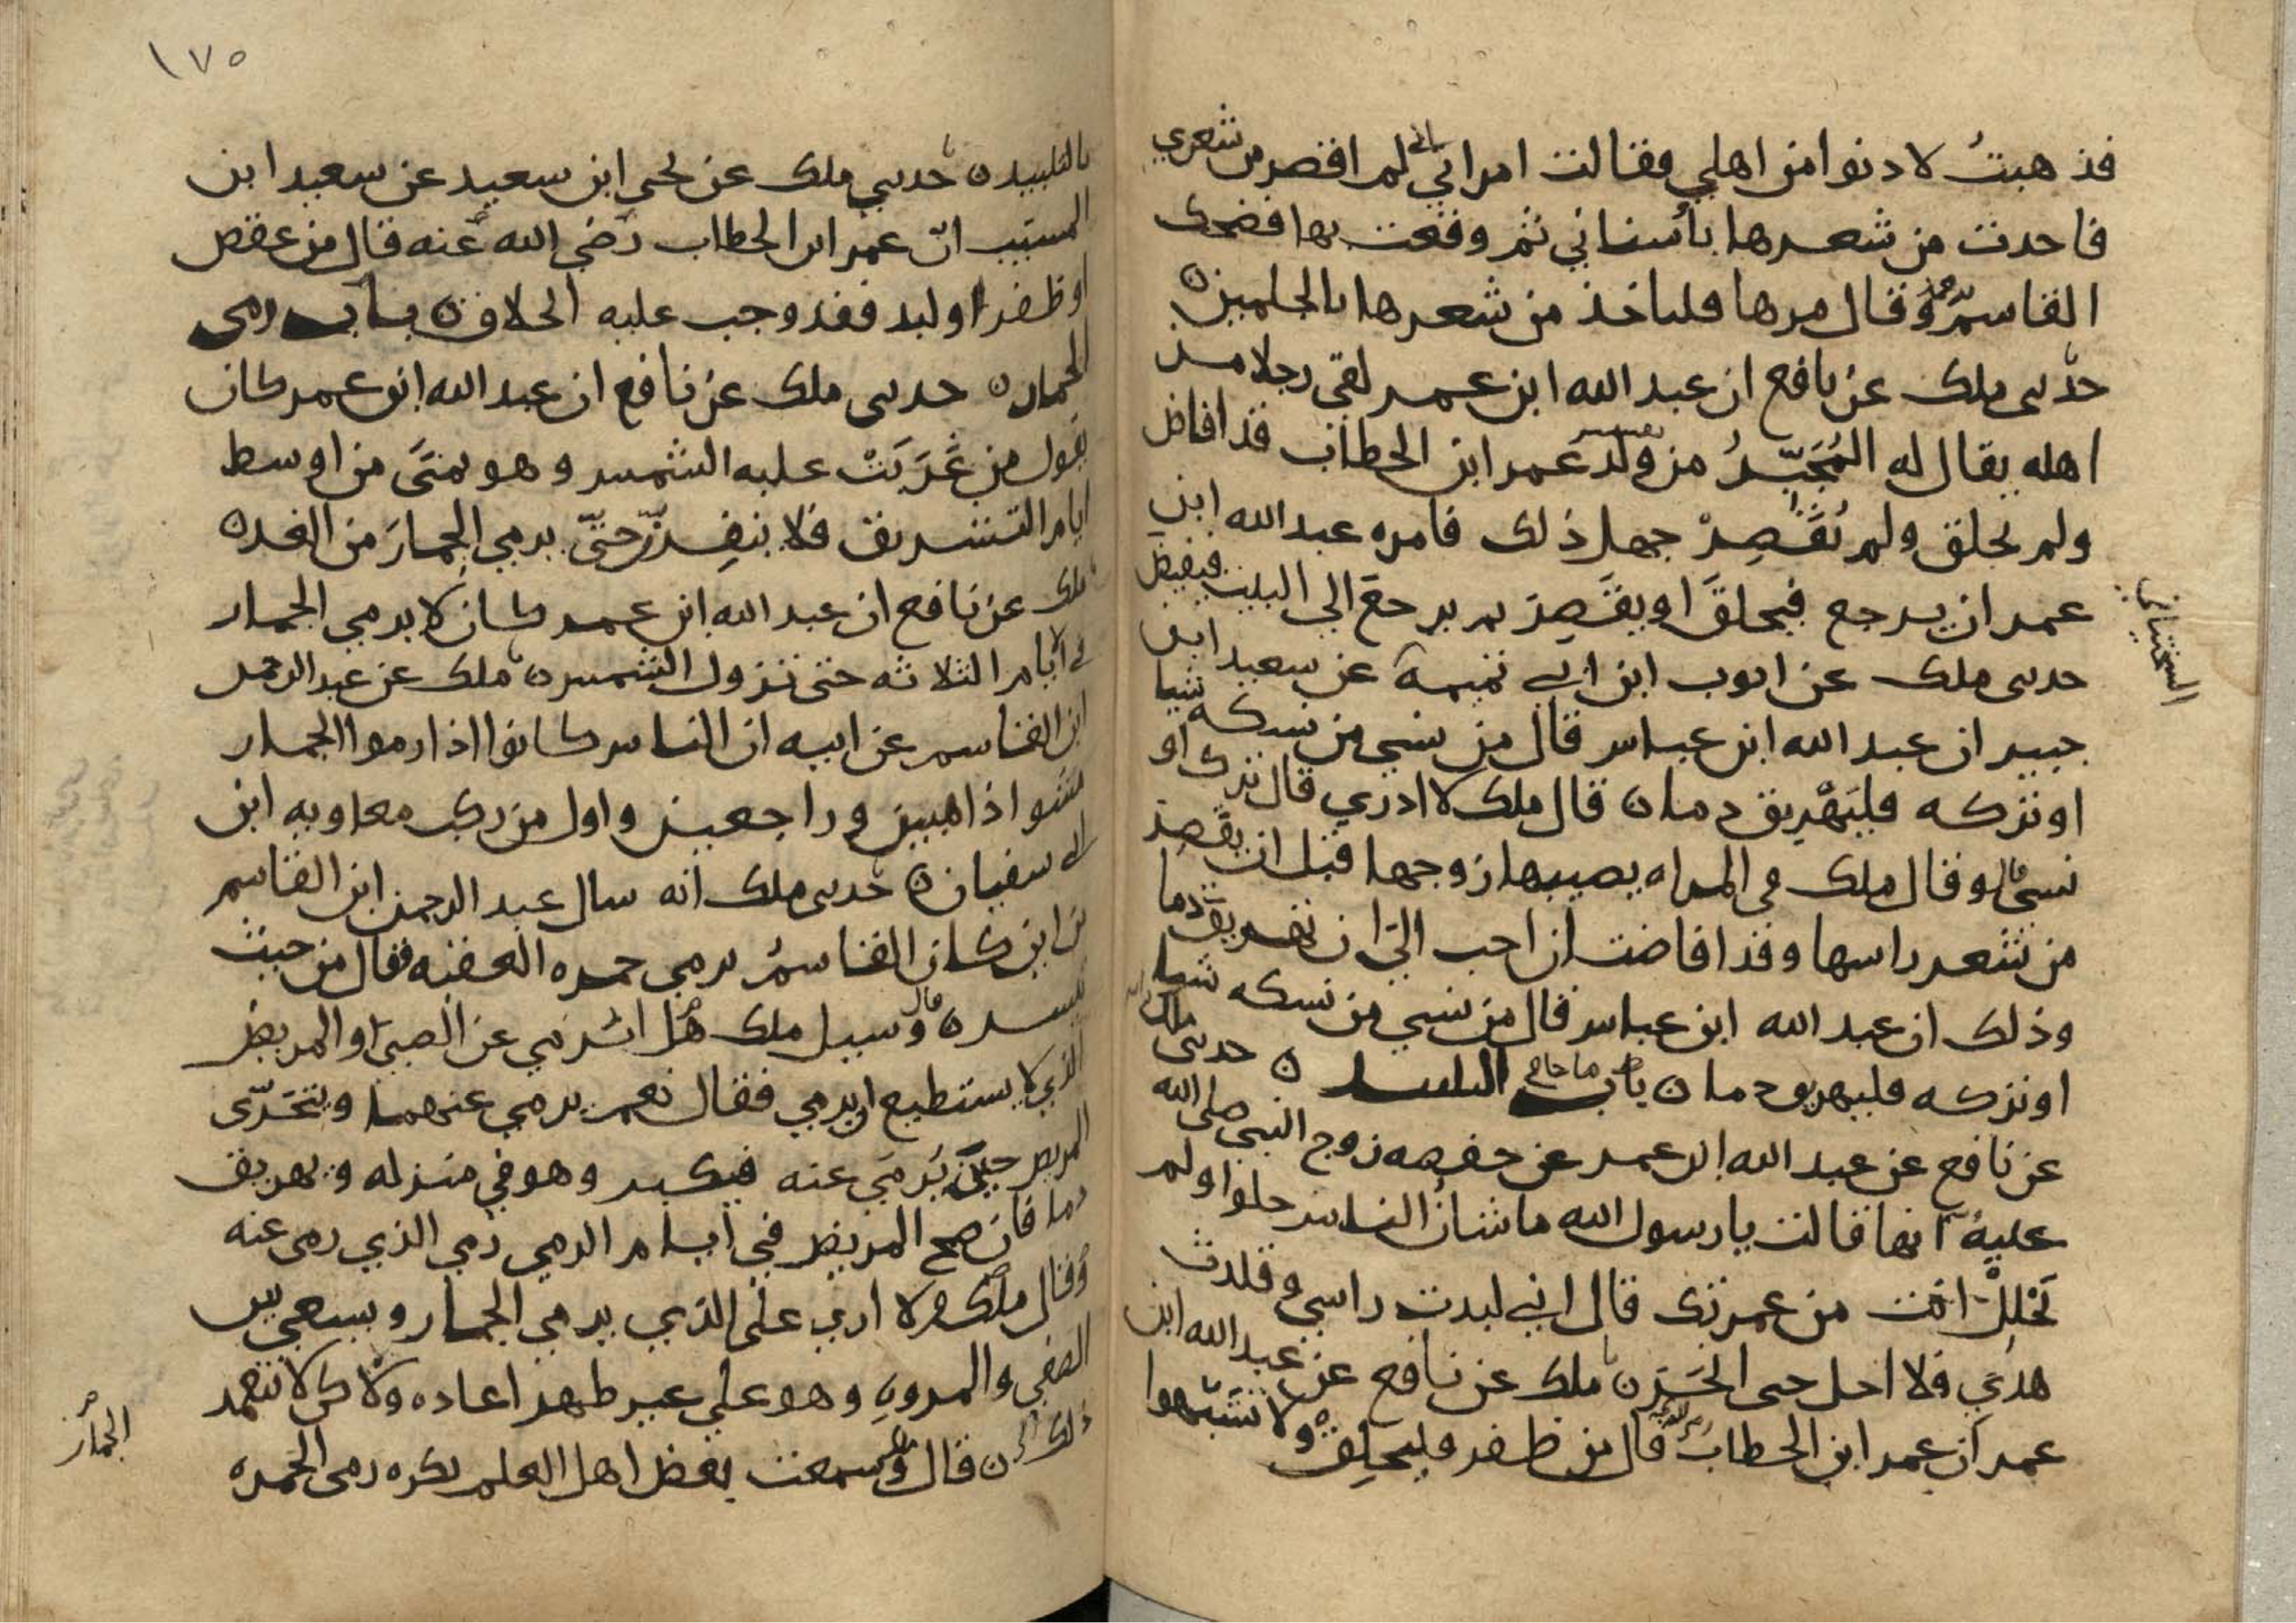 فذهبتُ لادنوا من اهلي فقالت امراتي اني لم اقصر من شعري
فاخذت من شعرها باسناني ثم وقعت بها فضحك
القاسم وقال مرها فلتاخذ من شعرها بالجلمين ه
حدثني ملك عن نافع ان عبد الله ابن عمر لقي رجلا من
اهله يقال له المُجَبَّرُ من ولد عمر ابن الخطاب قد افاض
ولم يحلق ولم يُقَصِرْ جهل ذلك فامره عبد الله ابن
عمر ان يرجع فيحلقَ او يقَصِرَ ثم يرجع الي البيت فيفيض
حدثني ملك عن ايوب ابن ابي تميمة عن سعيد ابن
السختياني
جبير ان عبد الله ابن عباس قال من نسي من نسكه شيا
او تركه فليَهْرِيق دما ه قال ملك لا ادري قال ترك او
نسي قال وقال ملك في المراه يصيبها زوجها قبل ان يقَصِرَ
من شعر راسها وقد افاضت ان احب اليّ ان تهريق دما
وذلك ان عبد الله ابن عباس قال من نسي من نسكه شيا
او تركه فليهريق دما ه باب ما جا في التلبيد ه حدثني ملك
عن نافع عن عبد الله ابن عمر عن حفصه زوج النبي صلى الله
عليه انها قالت يا رسول الله ما شانُ الناس حلوا ولم
تَحْلِلْ انت من عمرتك قال اني لبدت راسي وقلدت
هديي فلا احل حتى انحَرَ ه ملك عن نافع عن عبد الله ابن
عمر ان عمر ابن الخطاب قال من ظفر فليحلِق ولا تشَبَّهوا
١٧٥
بالتلبيد ه حدثني ملك عن يحيى ابن سعيد عن سعيد ابن
المسيب انّ عمر ابن الخطاب رضي الله عنه قال من عقص
او ظفر او لبد فقد وجب عليه الحلاق ه باب رمي
الجمار ه حدثني ملك عن نافع ان عبد الله ابن عمر كان
يقول من غَرَبَتْ عليه الشمس وهو بمنَى من اوسط
ايام التشريق فلا ينفِرنّ حتّى يرمي الجمارَ من الغد ه
ملك عن نافع ان عبد الله ابن عمر كان لا يرمي الجمار
في الايام الثلاثه حتى تزول الشمس ه ملك عن عبد الرحمن
ابن القاسم عن ابيه ان الناس كانوا اذا رموا الجمار
مشوا ذاهبين وراجعين واول من ركب معاويه ابن
ابي سفيان ه حدثني ملك انه سال عبد الرحمن ابن القاسم
من اين كان القاسمُ يرمي جمره العقبه فقال من حيث
تيسر ه قال وسيل ملك هل يُرمَي عن الصبي او المريض
الذي لا يستطيع ان يرمي فقال نعم يرمي عنهما ويتحَرّى
المريض حينَ يُرمَي عنه فيكبر وهو في منزله ويهريق
دما فان صح المريض في ايام الرمي رمي الذي رمي عنه
وقال ملك لا اري على الذي يرمي الجمار ويسعي بين
الصفي والمروهِ وهو علي غير طهر اعاده ولاكن لا يتعمد
ذلك ه قال وسمعت بعض اهل العلم يكره رمي الجمره
الجمارَ